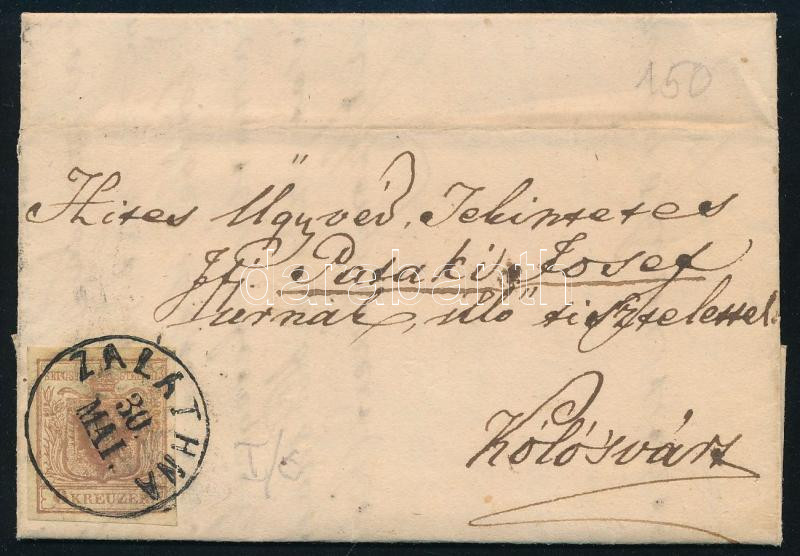 150
Hites Ügyvéd, Tekintetes
Ifj. Pataki Josef
Urnak, illő tisztelettel
Kólósvárt
darabanth
ZALATHNA
30.
MAI.
KREUZER
I/c